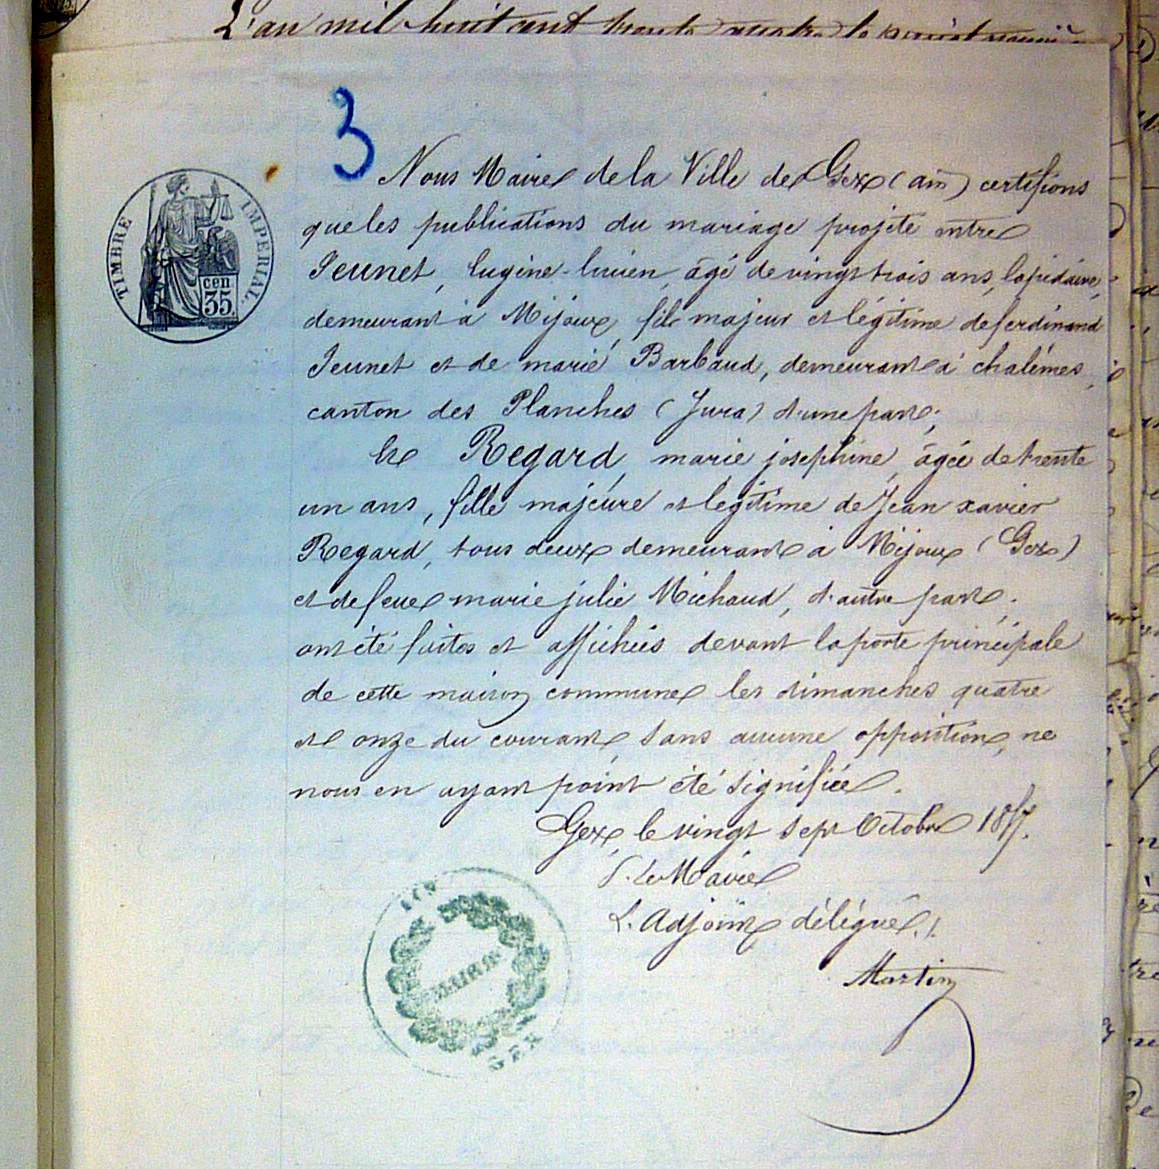 L'an mil huit cent trente quatre le
3
Nous Maire de la Ville de Gex (ain) certifions
que les publications du mariage projeté entre
TIMBRE IMPERIAL
cen
35.
Jeunet, Eugène-lucien, âgé de vingt trois ans, lapidaire,
demeurant à Mijoux, fils majeur et légitime de ferdinand
Jeunet et de marie Barbaud, demeurant à chalêmes,
canton des Planches (Jura) d'une part;
Et Regard, marie joséphine, âgée de trente
un ans, fille majeure et légitime de Jean xavier
Regard, tous deux demeurant à Mijoux (Gex)
et de feue marie julie Michaud, d'autre part.
ont été faites et affichées devant la porte principale
de cette maison commune les dimanches quatre
et onze du courant, sans aucune opposition, ne
nous en ayant point été signifiée.
Gex, le vingt sept Octobre 1857.
P. le Maire
L'Adjoint délégué.
Martin
AIN
MAIRIE
GEX